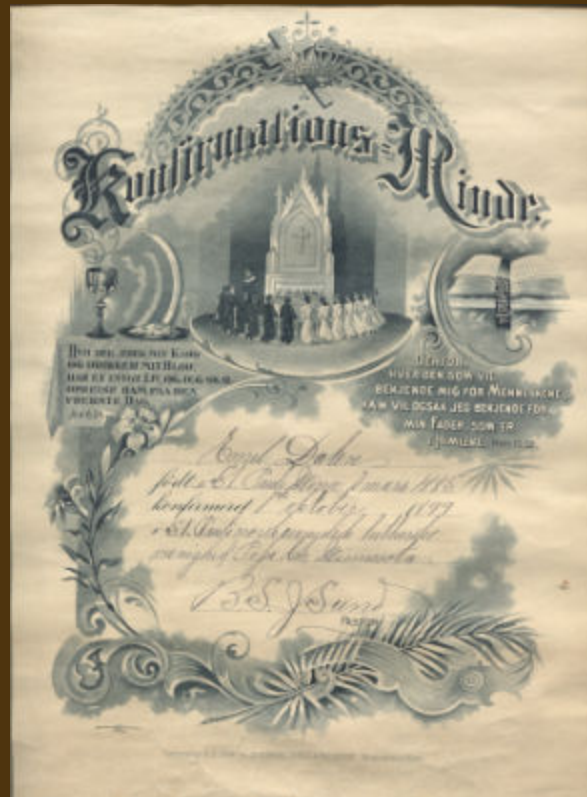 Konfirmations-Minde.
HVO DER ÆDER MIT KJØD
OG DRIKKER MIT BLOD,
HAR ET EVIGT LIV, OG JEG SKAL
OPREISE HAM PAA DEN
YDERSTE DAG.
DERFOR,
HVER DEN SOM VIL
BEKJENDE MIG FOR MENNESKENE,
HAM VIL OGSAA JEG BEKJENDE FOR
MIN FADER, SOM ER
I HIMLENE.
Emil
født i St. Pauls 7 mars
konfirmeret 1ste oktober 1899
i St. Pauli lutherske
menighed Minnesota
B. S. J. Sund